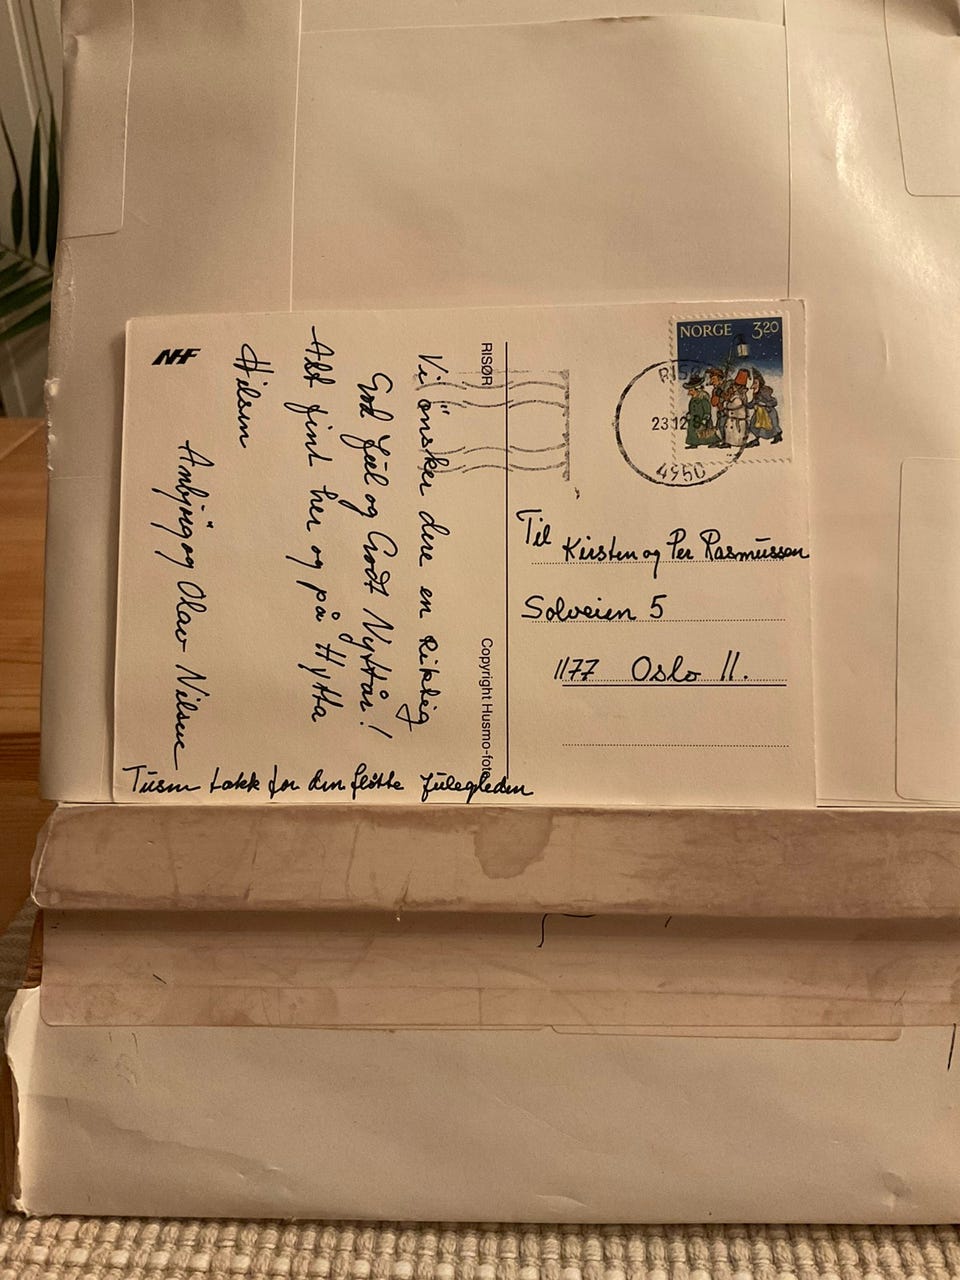 NHF
RISØR
Vi önsker dere en Riktig
God Jul og Godt Nyttår!
Alt fint her og på Hytta
Hilsen
Ambjörg og Olav Nilsen
Tusen takk for den flotte julegleden
Copyright Husmo-foto
NORGE 320
RISØR
23.12.
4950
Til Kirsten og Per Rasmussen
Solveien 5
1177 Oslo 11.